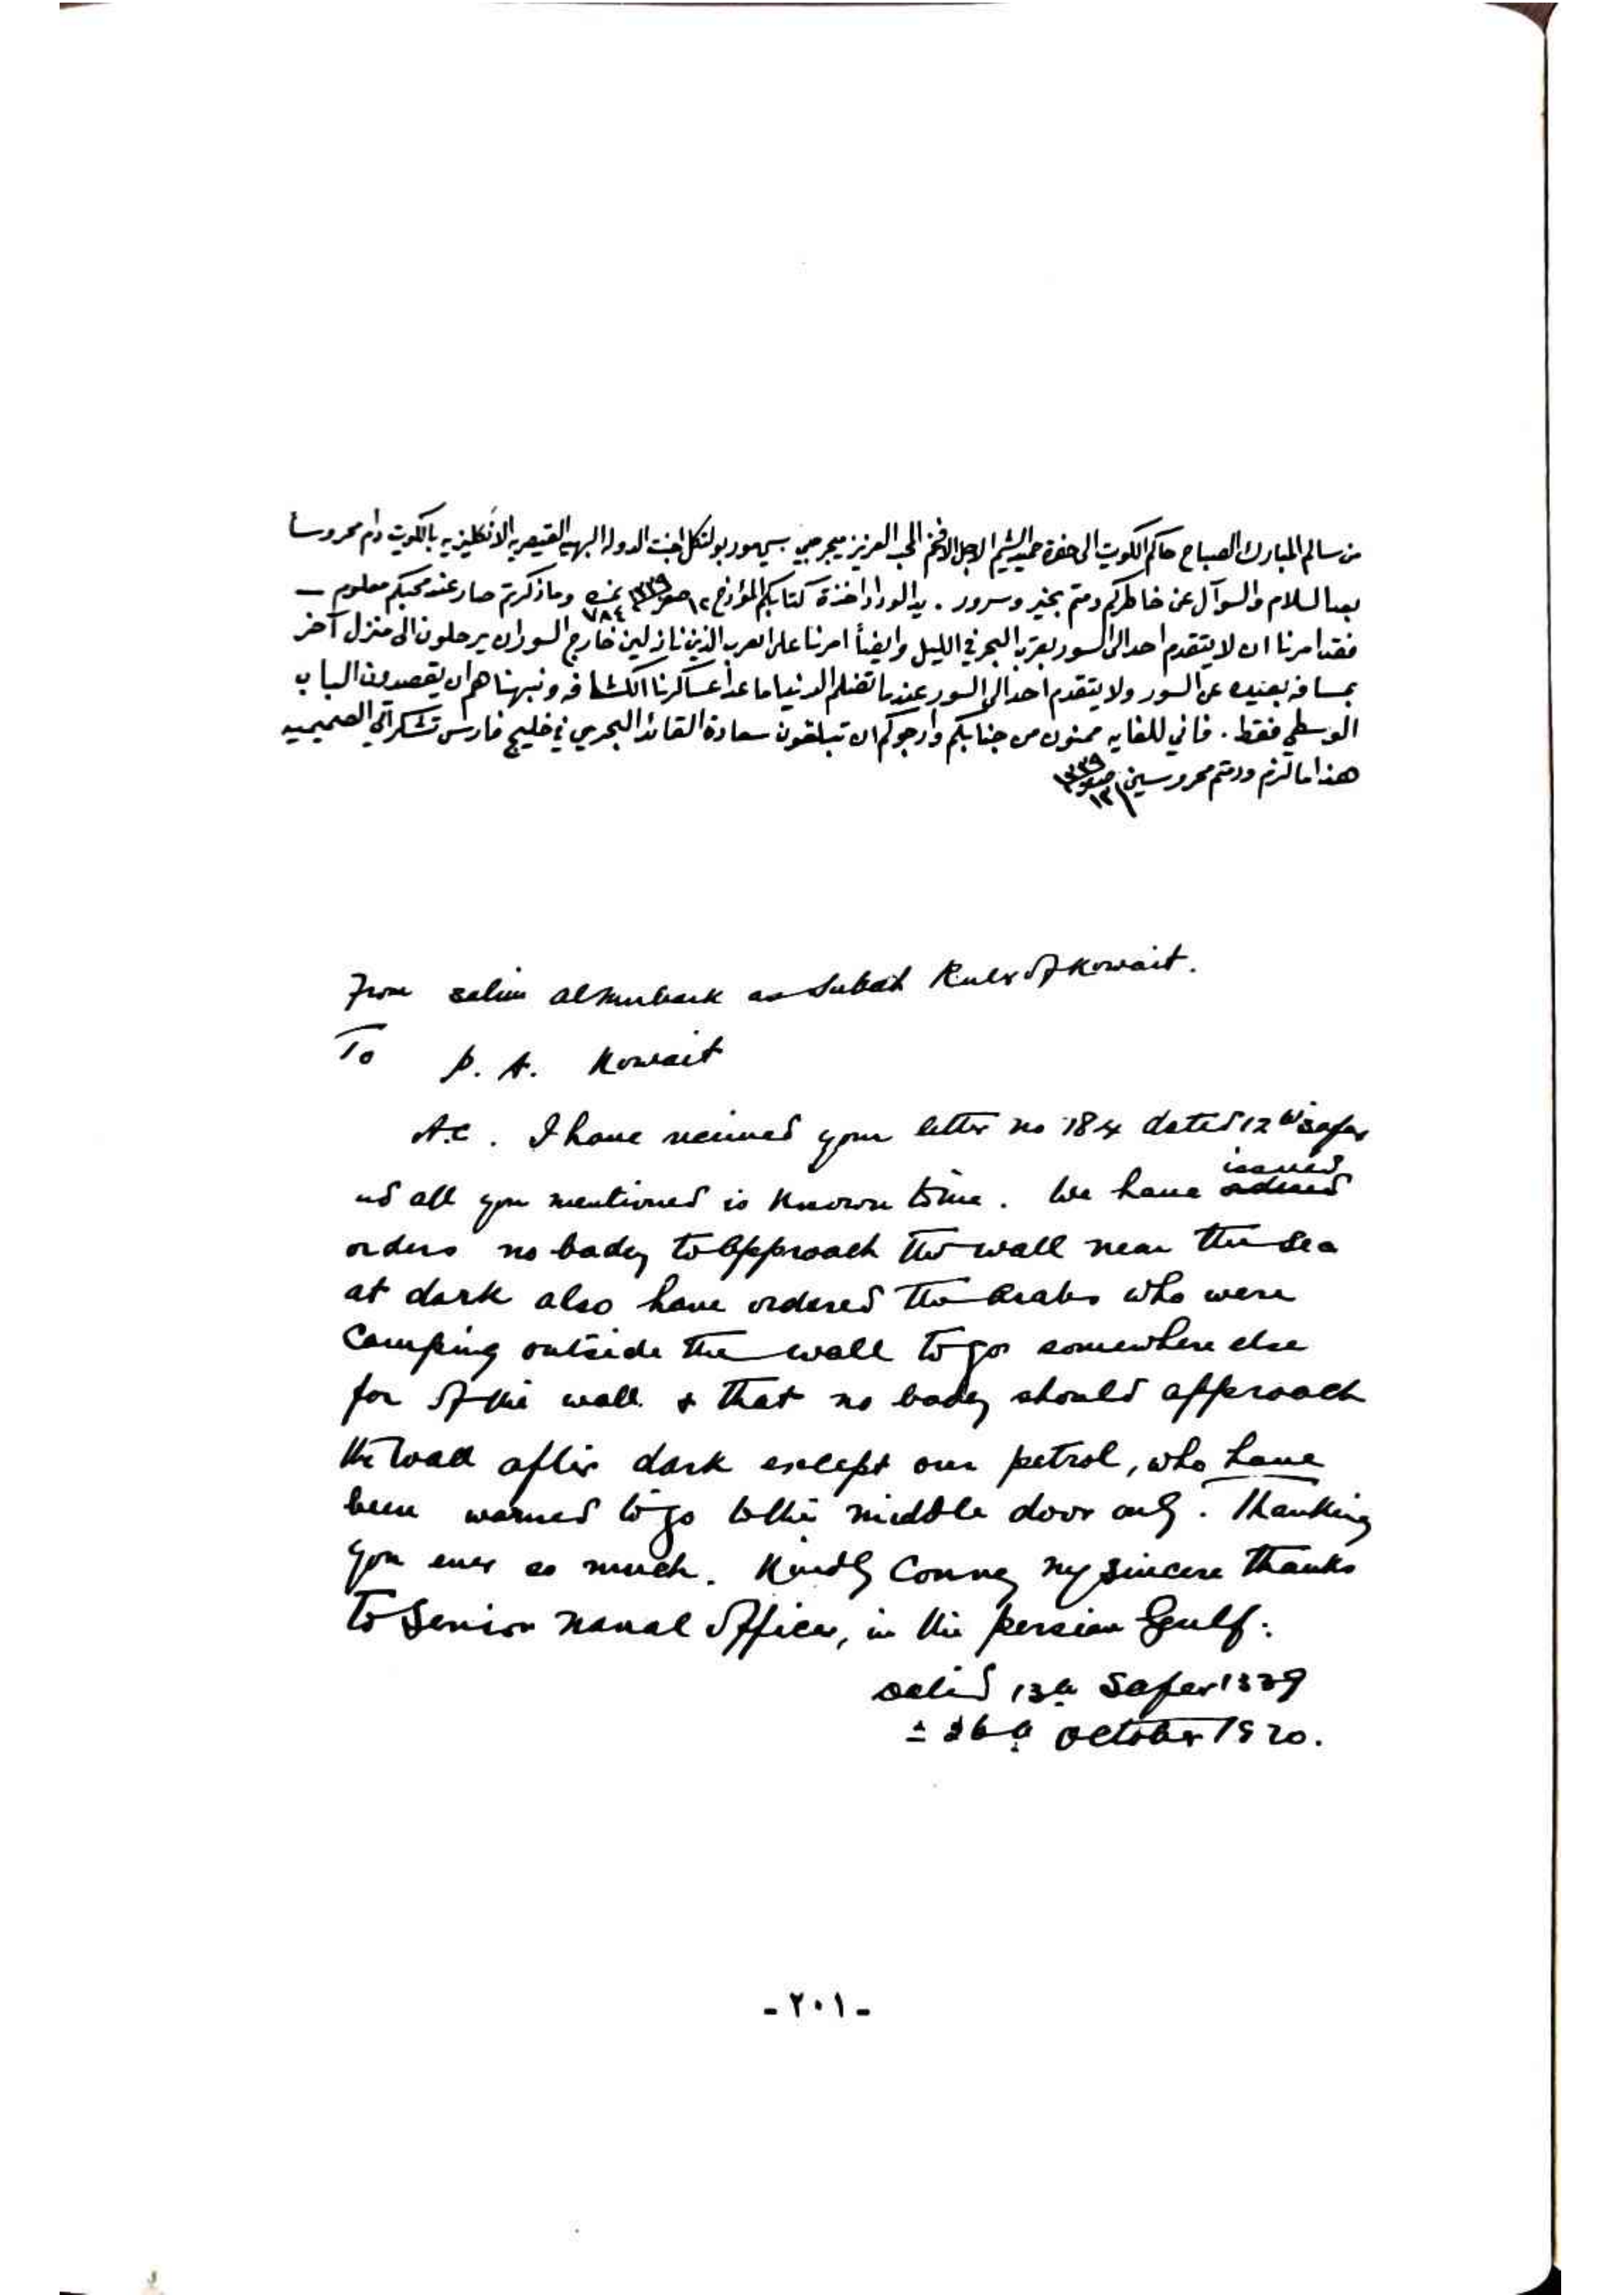 من سالم المبارك الصباح حاكم الكويت الى حضرة حميد الشيم الاجل الافخم المحب العزيز ميجر جي سي مور بولتكل اجنت الدولة البهيه القيصريه الانكليزيه بالكويت دام محروساً
بعد السلام والسوآل عن خاطركم دمتم بخير وسرور . بيد الوداد اخذة كتابكم المؤرخ ١٢ صفر ١٣٣٩ نمره ٧٨٤ وماذكرتم صار عند محبكم معلوم —
فقد امرنا ان لا يتقدم احد الى السور بقرب البحر في الليل وايضاً امرنا على العرب الذين نازلين خارج السور ان يرحلون الى منزل آخر
بمسافه بعيده عن السور ولا يتقدم احد الى السور عندما تضلم الدنيا ما عدا عساكرنا الكشافه ونبهناهم ان يقصدون الباب
الوسطي فقط . فاني للغايه ممنون من جنابكم وارجوكم ان تبلغون سعادة القائد البحري في خليج فارس تشكراتي الصميميه
هذا ما لزم ودمتم محروسين ١٣ صفر ١٣٣٩
From Salim almubark as Subah Ruler of Kowait.
To P. A. Kowait
A.C. I have received your letter no 784 dated 12th Safar
nd all you mentioned is known to me. We have issued ordered
orders no body to approach the wall near the sea
at dark also have ordered the Arabs who were
Camping outside the wall to go somewhere else
far of the wall & that no body should approach
the wall after dark except our petrol, who have
been warned to go to the middle door only. Thanking
you ever so much. Kindly Convey my sincere thanks
to Senior naval Officer, in the persian Gulf.
dated 13th Safar 1339
= 26th October 1920.
- ٢٠١ -